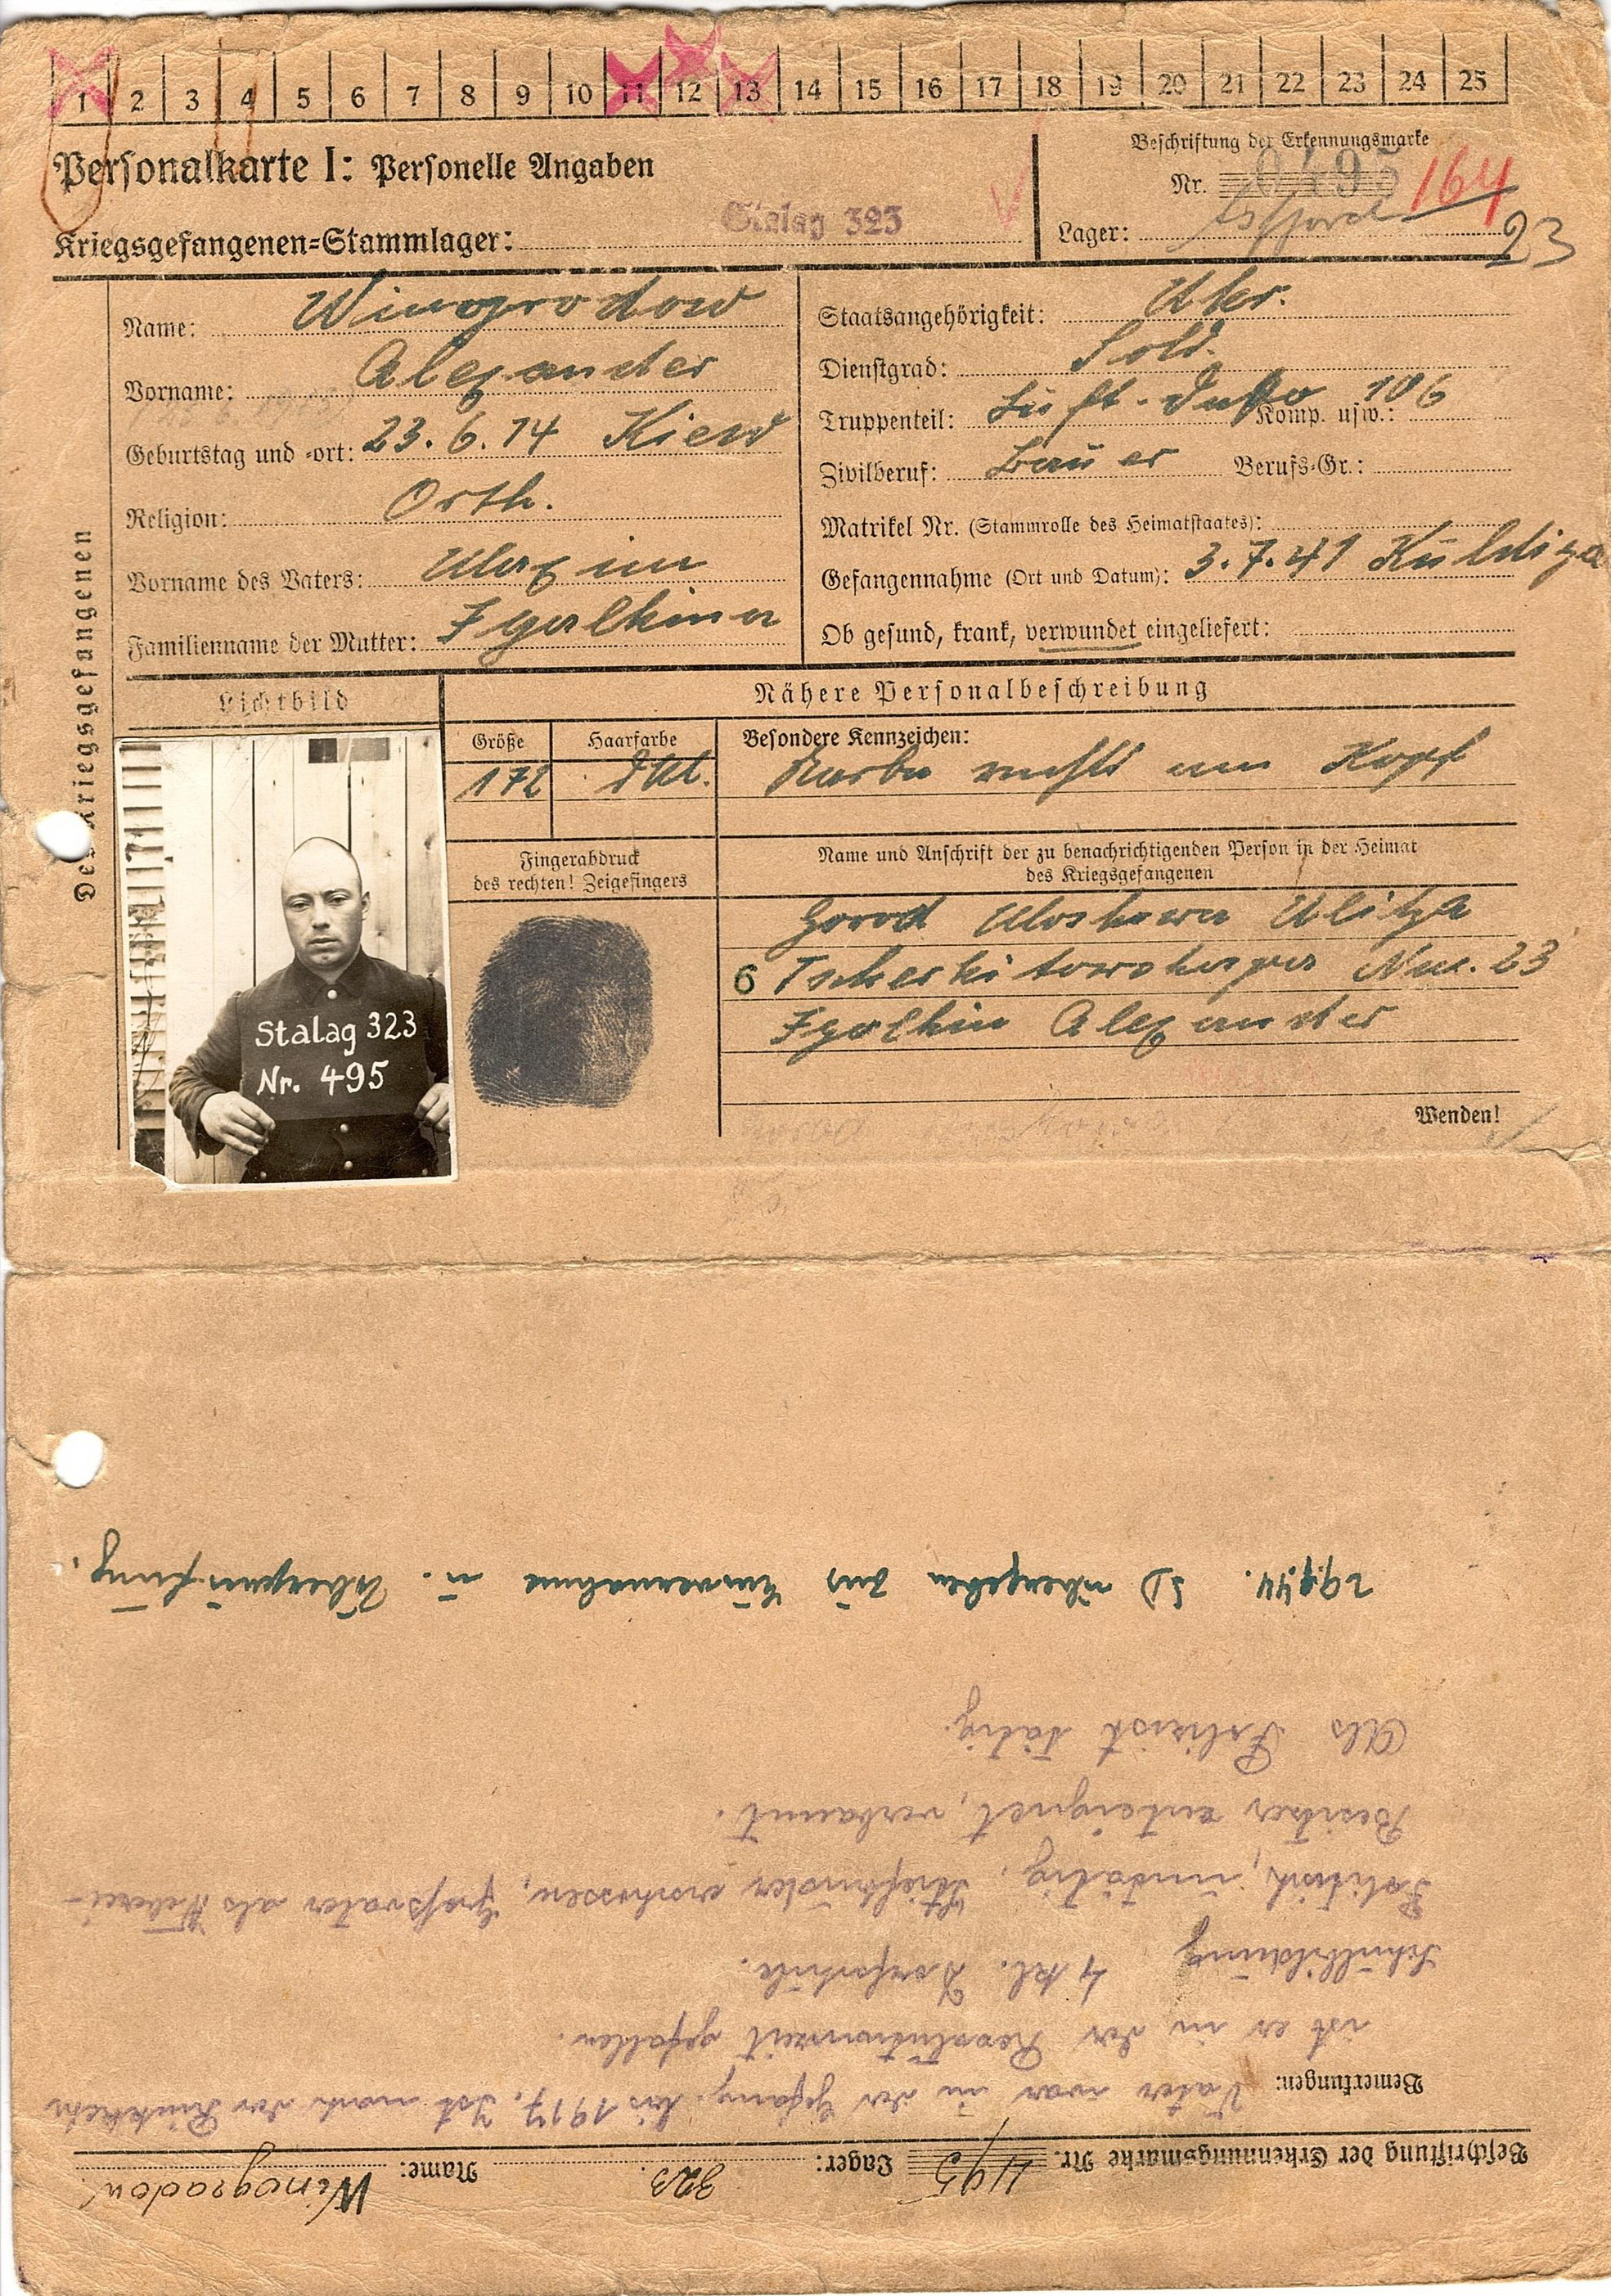 1 2 3 4 5 6 7 8 9 10 11 12 13 14 15 16 17 18 19 20 21 22 23 24 25
Personalkarte I: Personelle Angaben
Beschriftung der Erkennungsmarke
Nr. 0495 164
Kriegsgefangenen-Stammlager: Stalag 323
Lager:
23
Des Kriegsgefangenen
Name: Winogradow
Vorname: Alexander
Geburtstag und -ort: 23.6.14 Kiew
Religion: Orth.
Vorname des Vaters: Maxim
Familienname der Mutter: Igolkina
Staatsangehörigkeit: Ukr.
Dienstgrad: Sold.
Truppenteil: Komp. usw.: 106
Zivilberuf: Bauer Berufs-Gr.:
Matrikel Nr. (Stammrolle des Heimatstaates):
Gefangennahme (Ort und Datum): 3.7.41 Kuldiga
Ob gesund, krank, verwundet eingeliefert:
Lichtbild
Nähere Personalbeschreibung
Größe
172
Haarfarbe
dkl.
Besondere Kennzeichen:
Narbe rechts am Kopf
Stalag 323
Nr. 495
Fingerabdruck
des rechten! Zeigefingers
Name und Anschrift der zu benachrichtigenden Person in der Heimat
des Kriegsgefangenen
Gorod Moskawa Ulitza
6 Num. 23
Igolkin Alexander
Wenden!
Beschriftung der Erkennungsmarke Nr. 495 Lager: 323 Name: Winogradow
Bemerkungen: Vater war in der Gefang. bis 1917. Ist nach der Rückkehr
ist er in der Revolutionszeit gefallen.
Schulbildung 4 kl. Dorfschule.
Politisch, untätig, erschossen, Großvater als Weberei-
Besitzer enteignet, verbannt.
Als Polizist tätig.
29.9.44. SD übergeben zur Einvernahme u. Überprüfung.